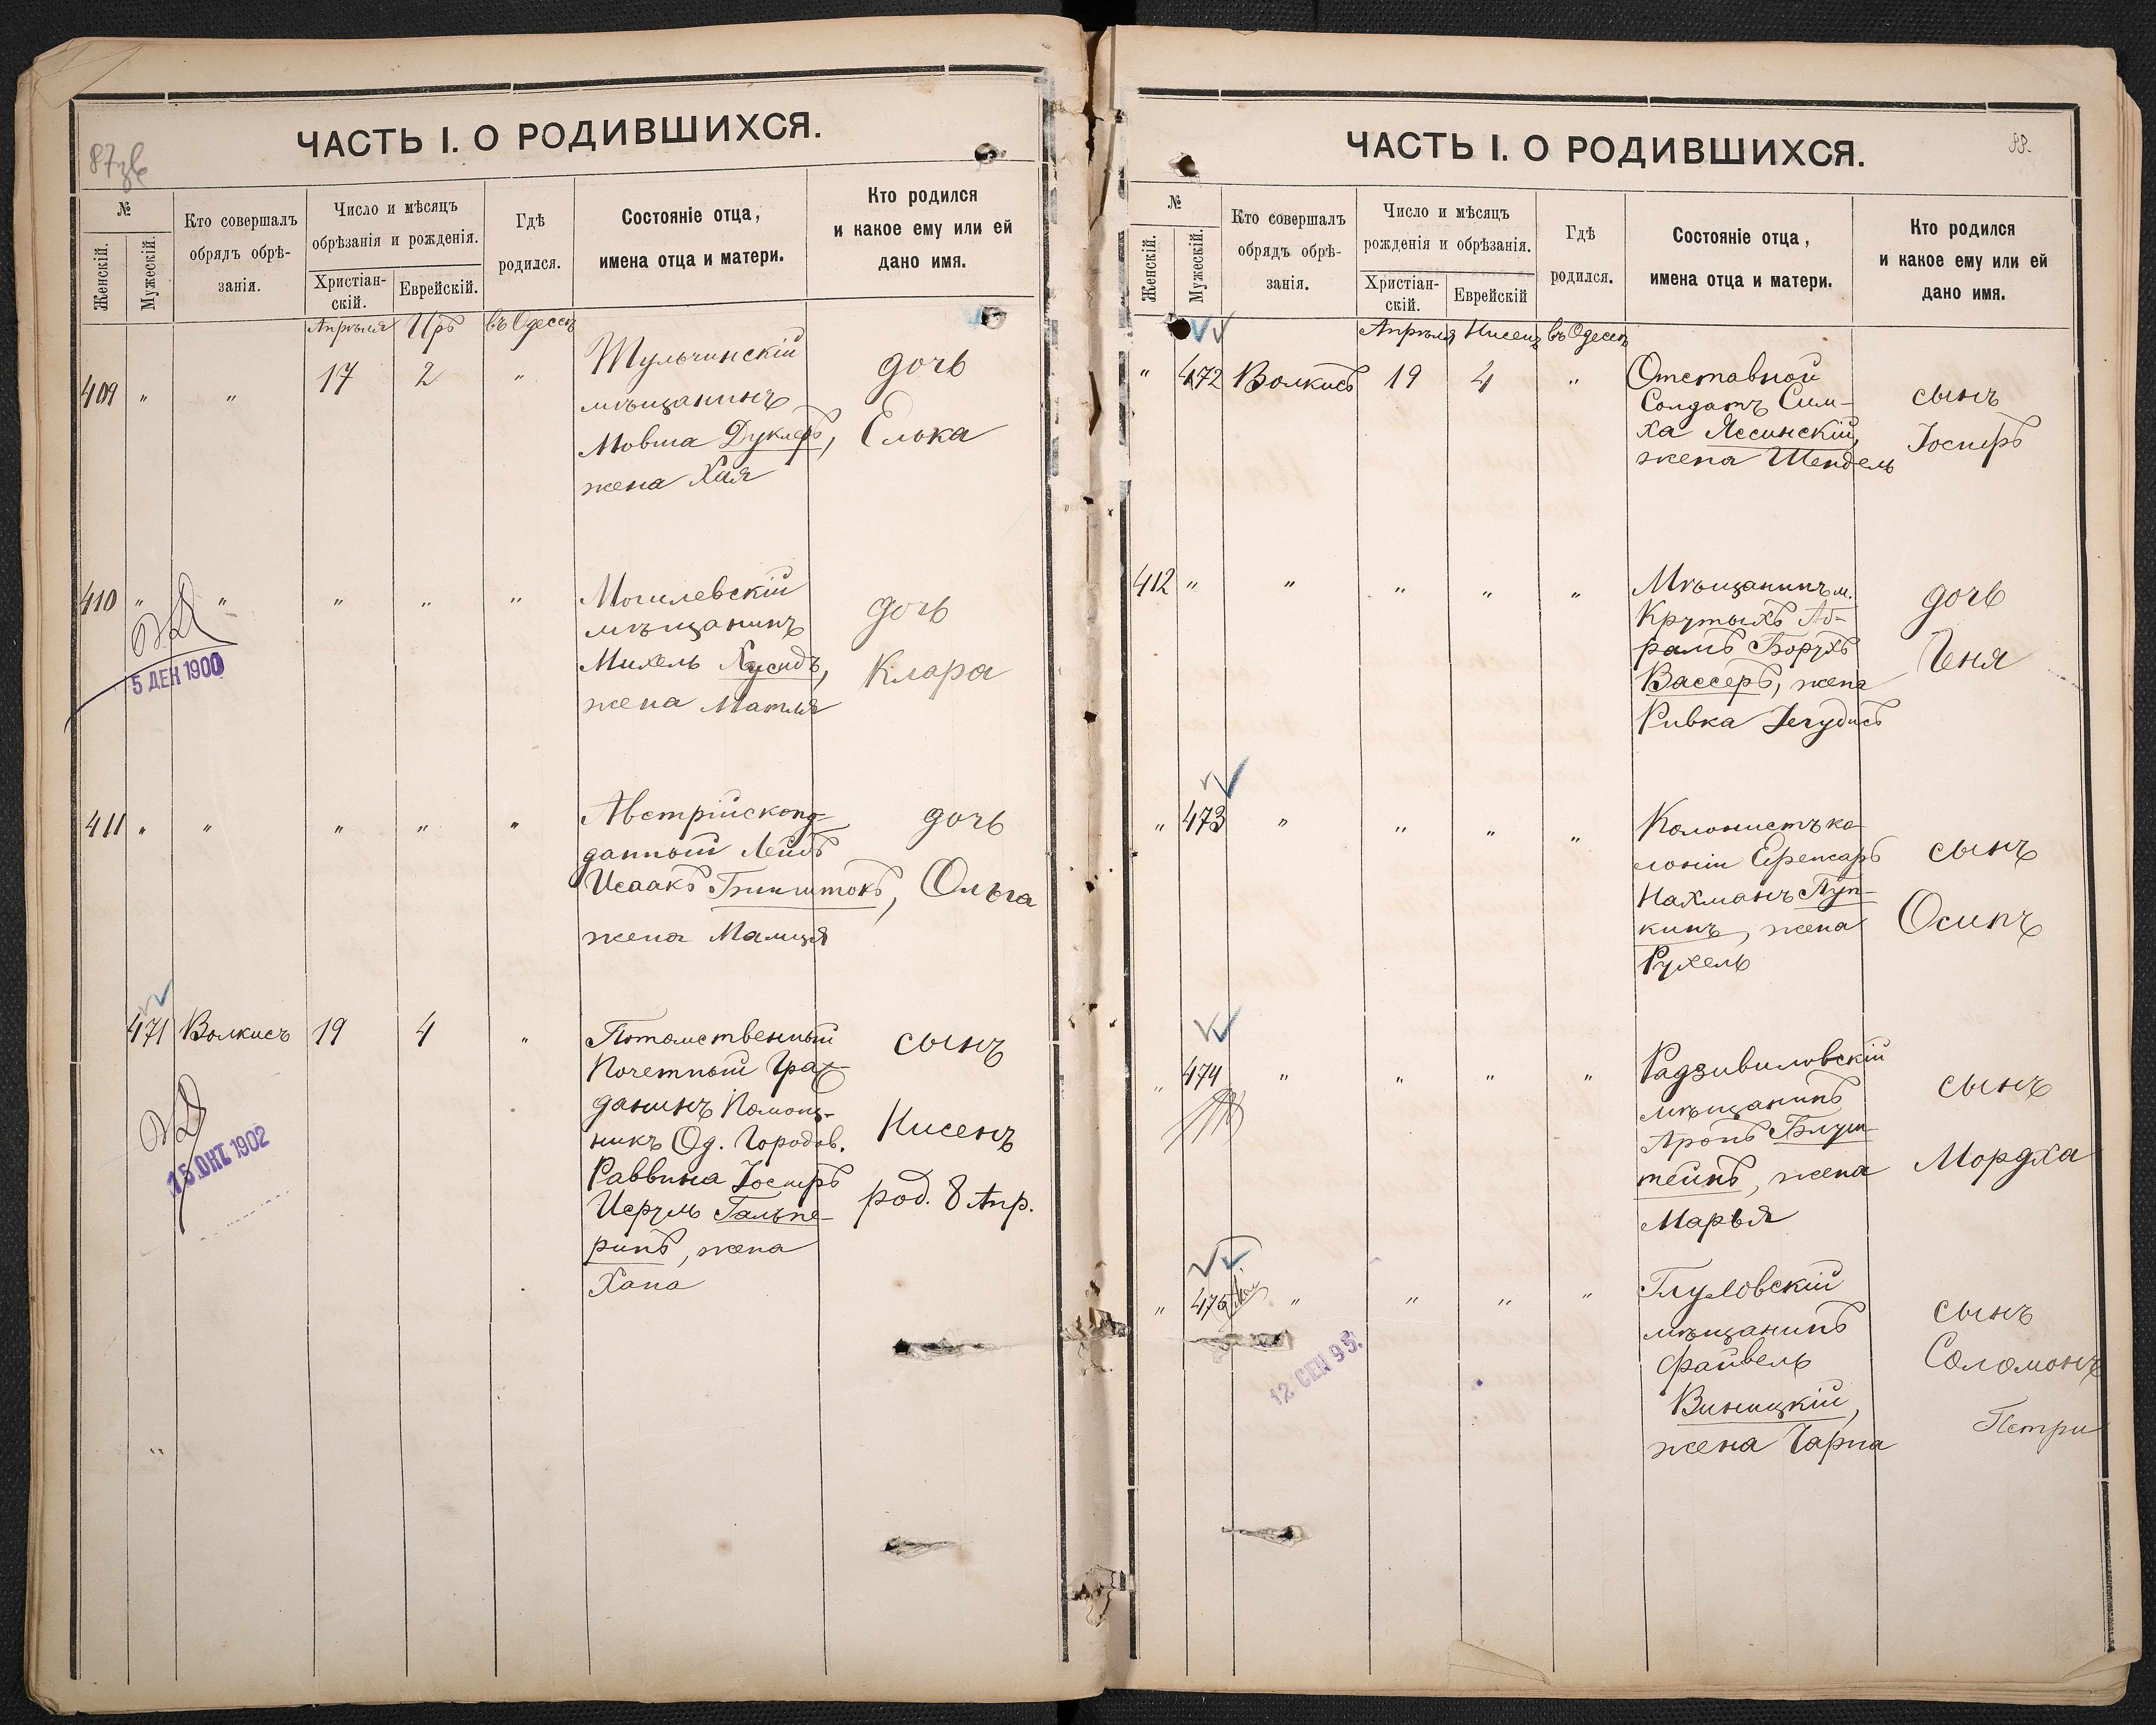 ЧАСТЬ I. О РОДИВШИХСЯ.
№
Женскій.
Мужескій.
Кто совершалъ
обрядъ обрѣ-
занія.
Число и мѣсяцъ
обрѣзанія и рожденія.
Христіан-
скій.
Еврейскій.
Гдѣ
родился.
Состояніе отца,
имена отца и матери.
Кто родился
и какое ему или ей
дано имя.
Апрѣля Иръ въ Одессѣ
409 " " 17 2 "
Тульчинскій
мѣщанинъ
Мовша Дуклеръ,
жена Хая
дочь
Елька
410 " " " " "
Могилевскій
мѣщанинъ
Михель Хусидъ,
жена Матля
дочь
Клара
5 ДЕК 1900
411 " " " " "
Австрійскопод-
данный Лейбъ
Исаакъ Бинштокъ,
жена Малиця
дочь
Ольга
471 Волкисъ 19 4 "
Потомственный
Почетный Граж-
данинъ Помощ-
никъ Од. Городов.
Раввина Іосифъ
Исруль Гальпе-
ринъ, жена
Хана
сынъ
Нисенъ
род. 8 Апр.
15 ОКТ 1902
"
ЧАСТЬ I. О РОДИВШИХСЯ.
88.
№
Женскій.
Мужескій.
Кто совершалъ
обрядъ обрѣ-
занія.
Число и мѣсяцъ
рожденія и обрѣзанія.
Христіан-
скій.
Еврейскій
Гдѣ
родился.
Состояніе отца,
имена отца и матери.
Кто родился
и какое ему или ей
дано имя.
Апрѣля Нисенъ въ Одессѣ
" 472 Волкисъ 19 4 "
Отставной
Солдатъ Сим-
ха Ясинскій,
жена Шендель
сынъ
Іосифъ
412 " " " " "
Мѣщанинъ м.
Крутыхъ Аб-
рамъ Борухъ
Вассеръ, жена
Ривка Іегудисъ
дочь
Геня
" 473 " " " "
Колонистъ ко-
лоніи Ефенгаръ
Нахманъ Пуп-
кинъ, жена
Рухель
сынъ
Осипъ
" 474 " " " "
Радзивиловскій
мѣщанинъ
Аронъ Блуш-
тейнъ, жена
Марья
сынъ
Мордха
" 475 " " " "
мѣщанинъ
Файвель
Виницкій,
жена Чарна
сынъ
Соломонъ
12 СЕН 95.